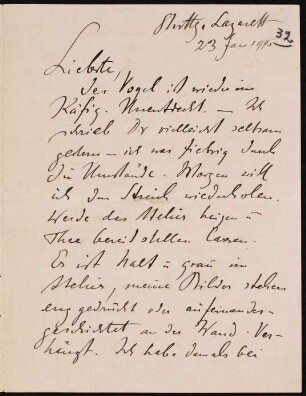 Stuttg. Lazarett
23 Jan 1915
32
Liebste,
Der Vogel ist wieder im
Käfig. Unentdeckt. — Ich
schrieb Dir vielleicht seltsam
gestern – ich war fiebrig durch
die Umstände. Morgen will
ich den Streich wiederholen.
Werde das Atelier heizen u
Thee bereit stellen lassen.
Es ist kalt u grau im
Atelier, meine Bilder stehen
eng gedrückt oder aufeinander-
geschichtet an der Wand. Ver-
hängt. Ich habe damals bei